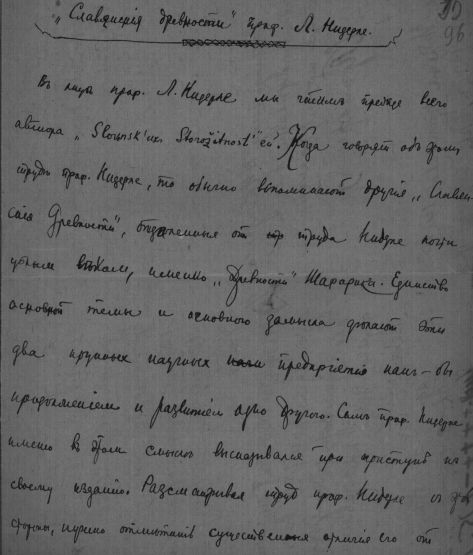 „Славянскія древности" проф. Л. Нидерле.
96
Въ лицѣ проф. Л. Нидерле мы чтимъ прежде всего
автора „Slovansk'ихъ Starožitnost'ей". Когда говорятъ объ этомъ
трудѣ проф. Нидерле, то обычно вспоминаютъ другія „Славян-
скія Древности", отдаленныя отъ труда Нидерле почти
цѣлымъ вѣкомъ, именно „Древности" Шафарика. Единство
основной темы и основного замысла дѣлаютъ эти
два крупныхъ научныхъ предпріятія какъ-бы
продолженіемъ и развитіемъ одно другого. Самъ проф. Нидерле
именно въ этомъ смыслѣ высказывался при приступѣ къ
своему изданію. Разсматривая трудъ проф. Нидерле съ этой
стороны, нужно отмѣтить существенныя отличія его отъ